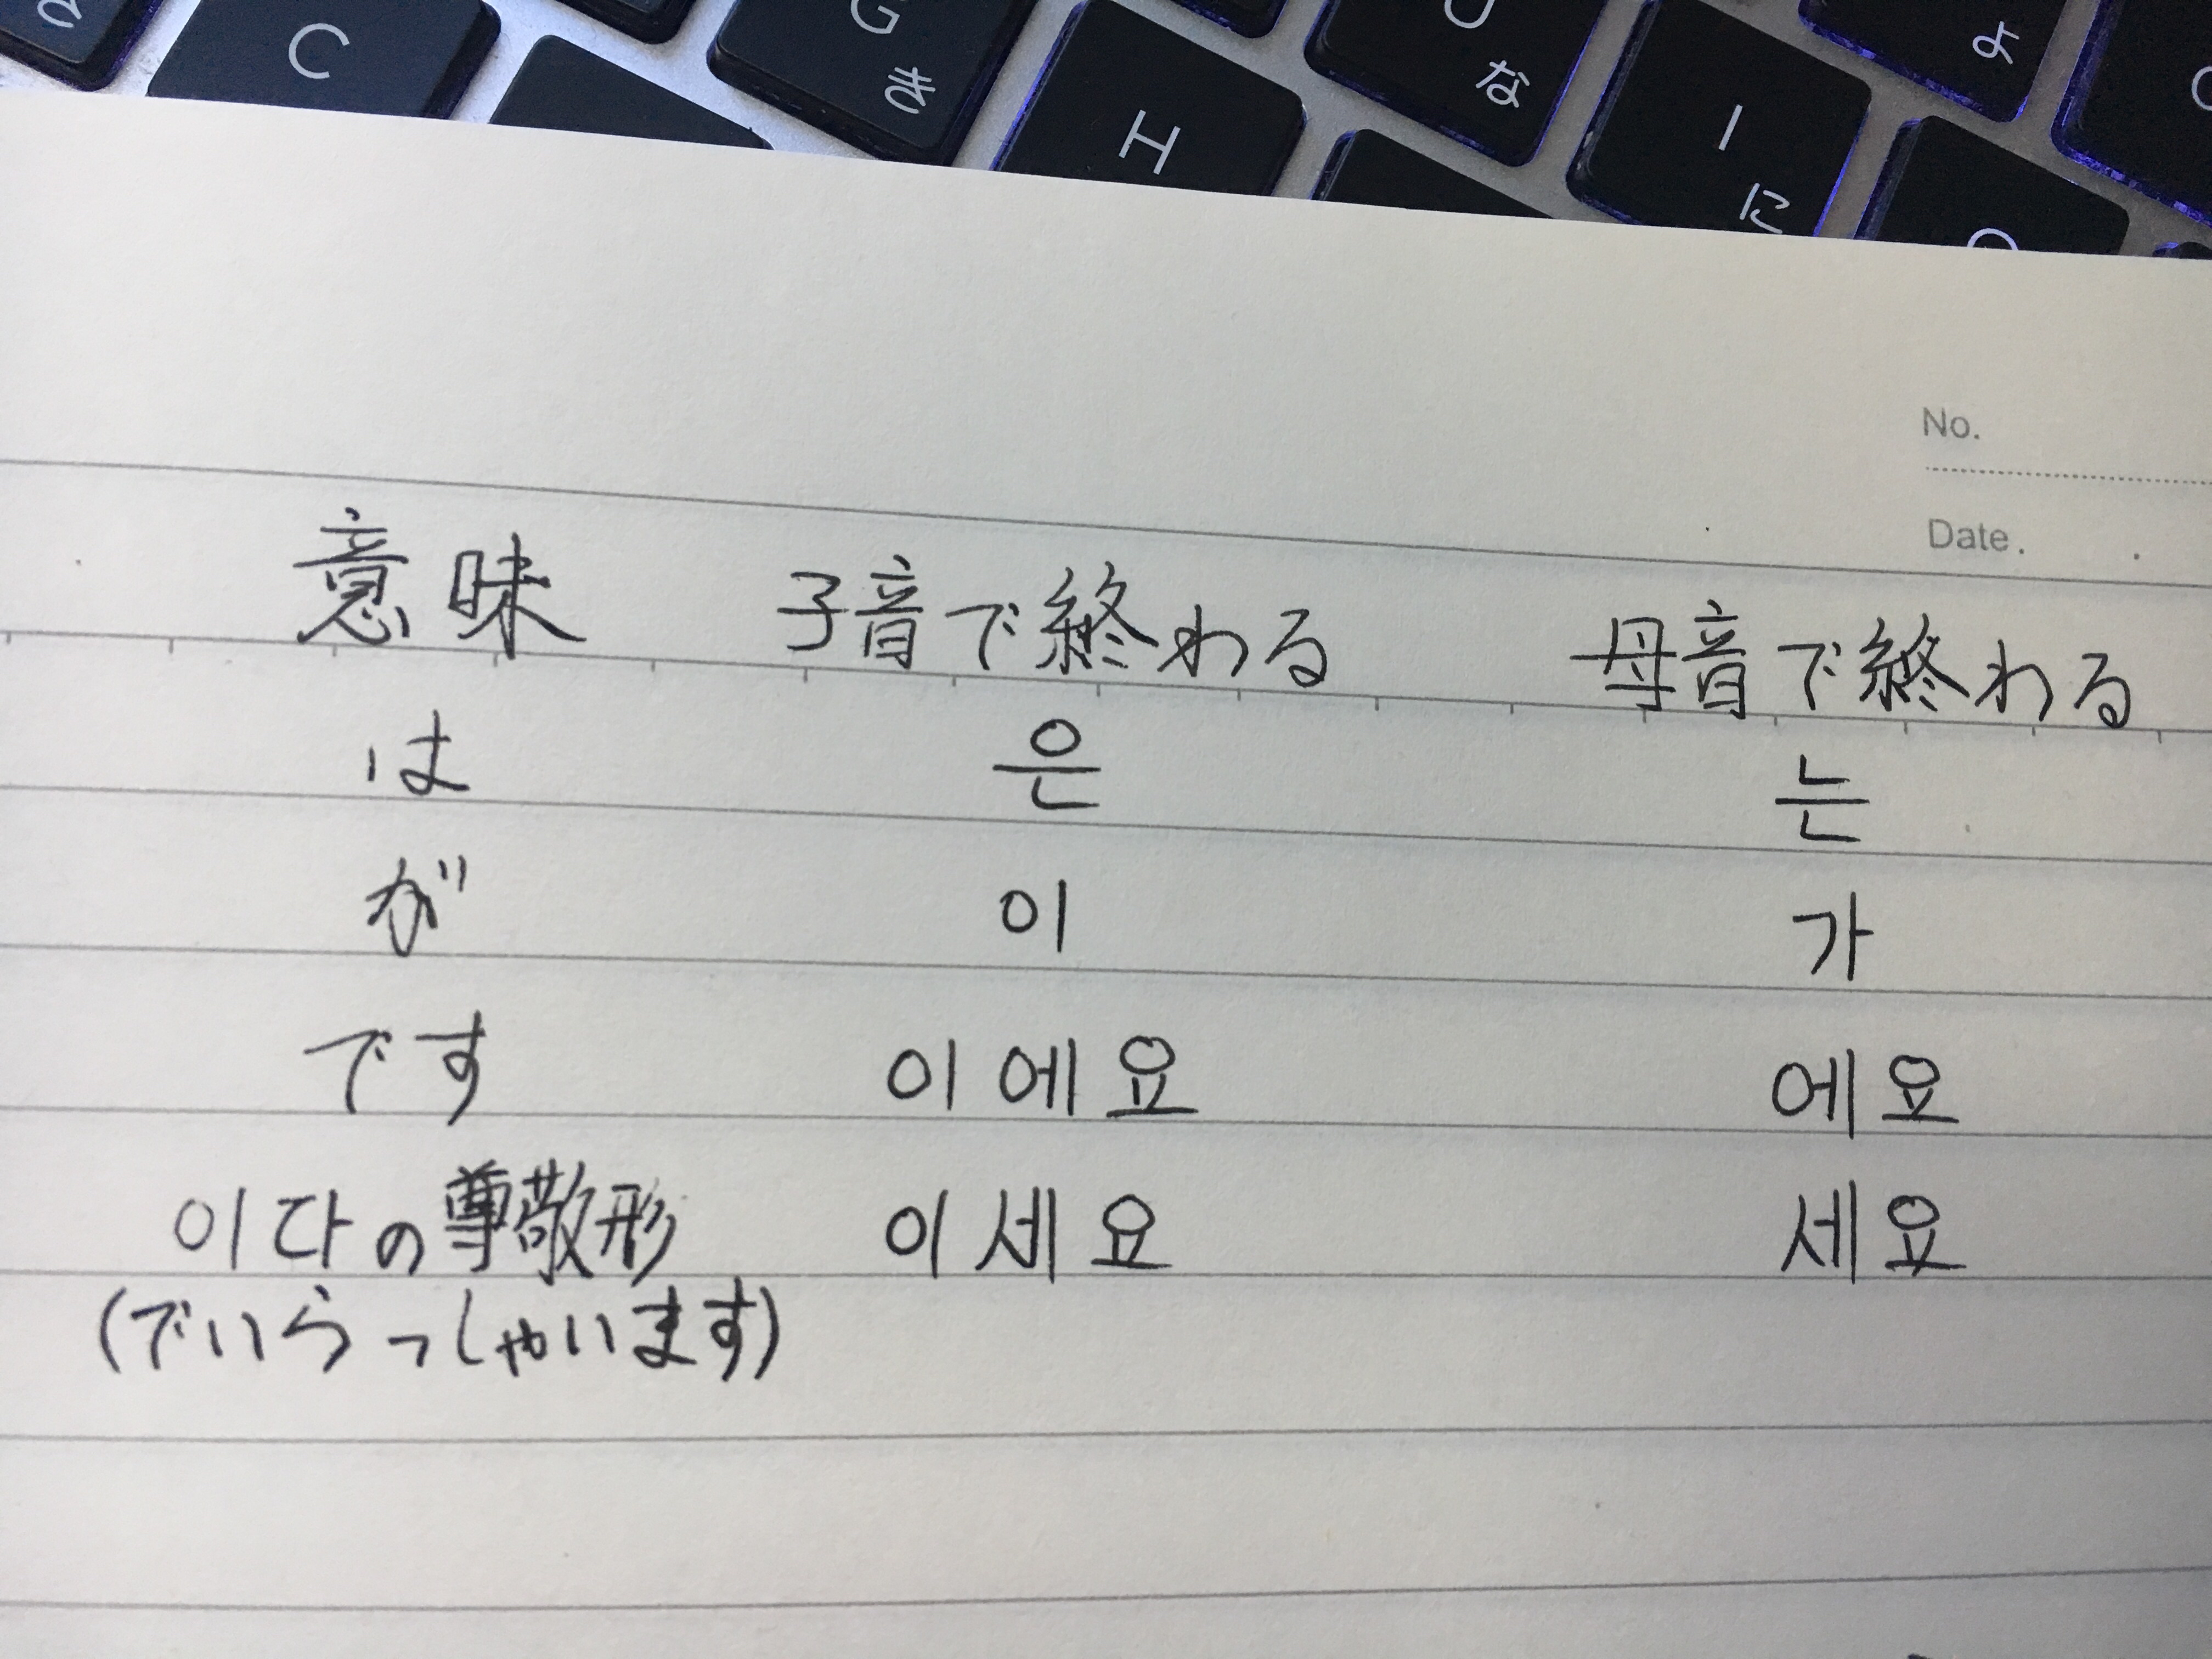 C
G き
H
な
I に
よ
No.
Date.
意味 子音で終わる 母音で終わる
は 은 는
が 이 가
です 이에요 에요
이다の尊敬形 이세요 세요
(でいらっしゃいます)